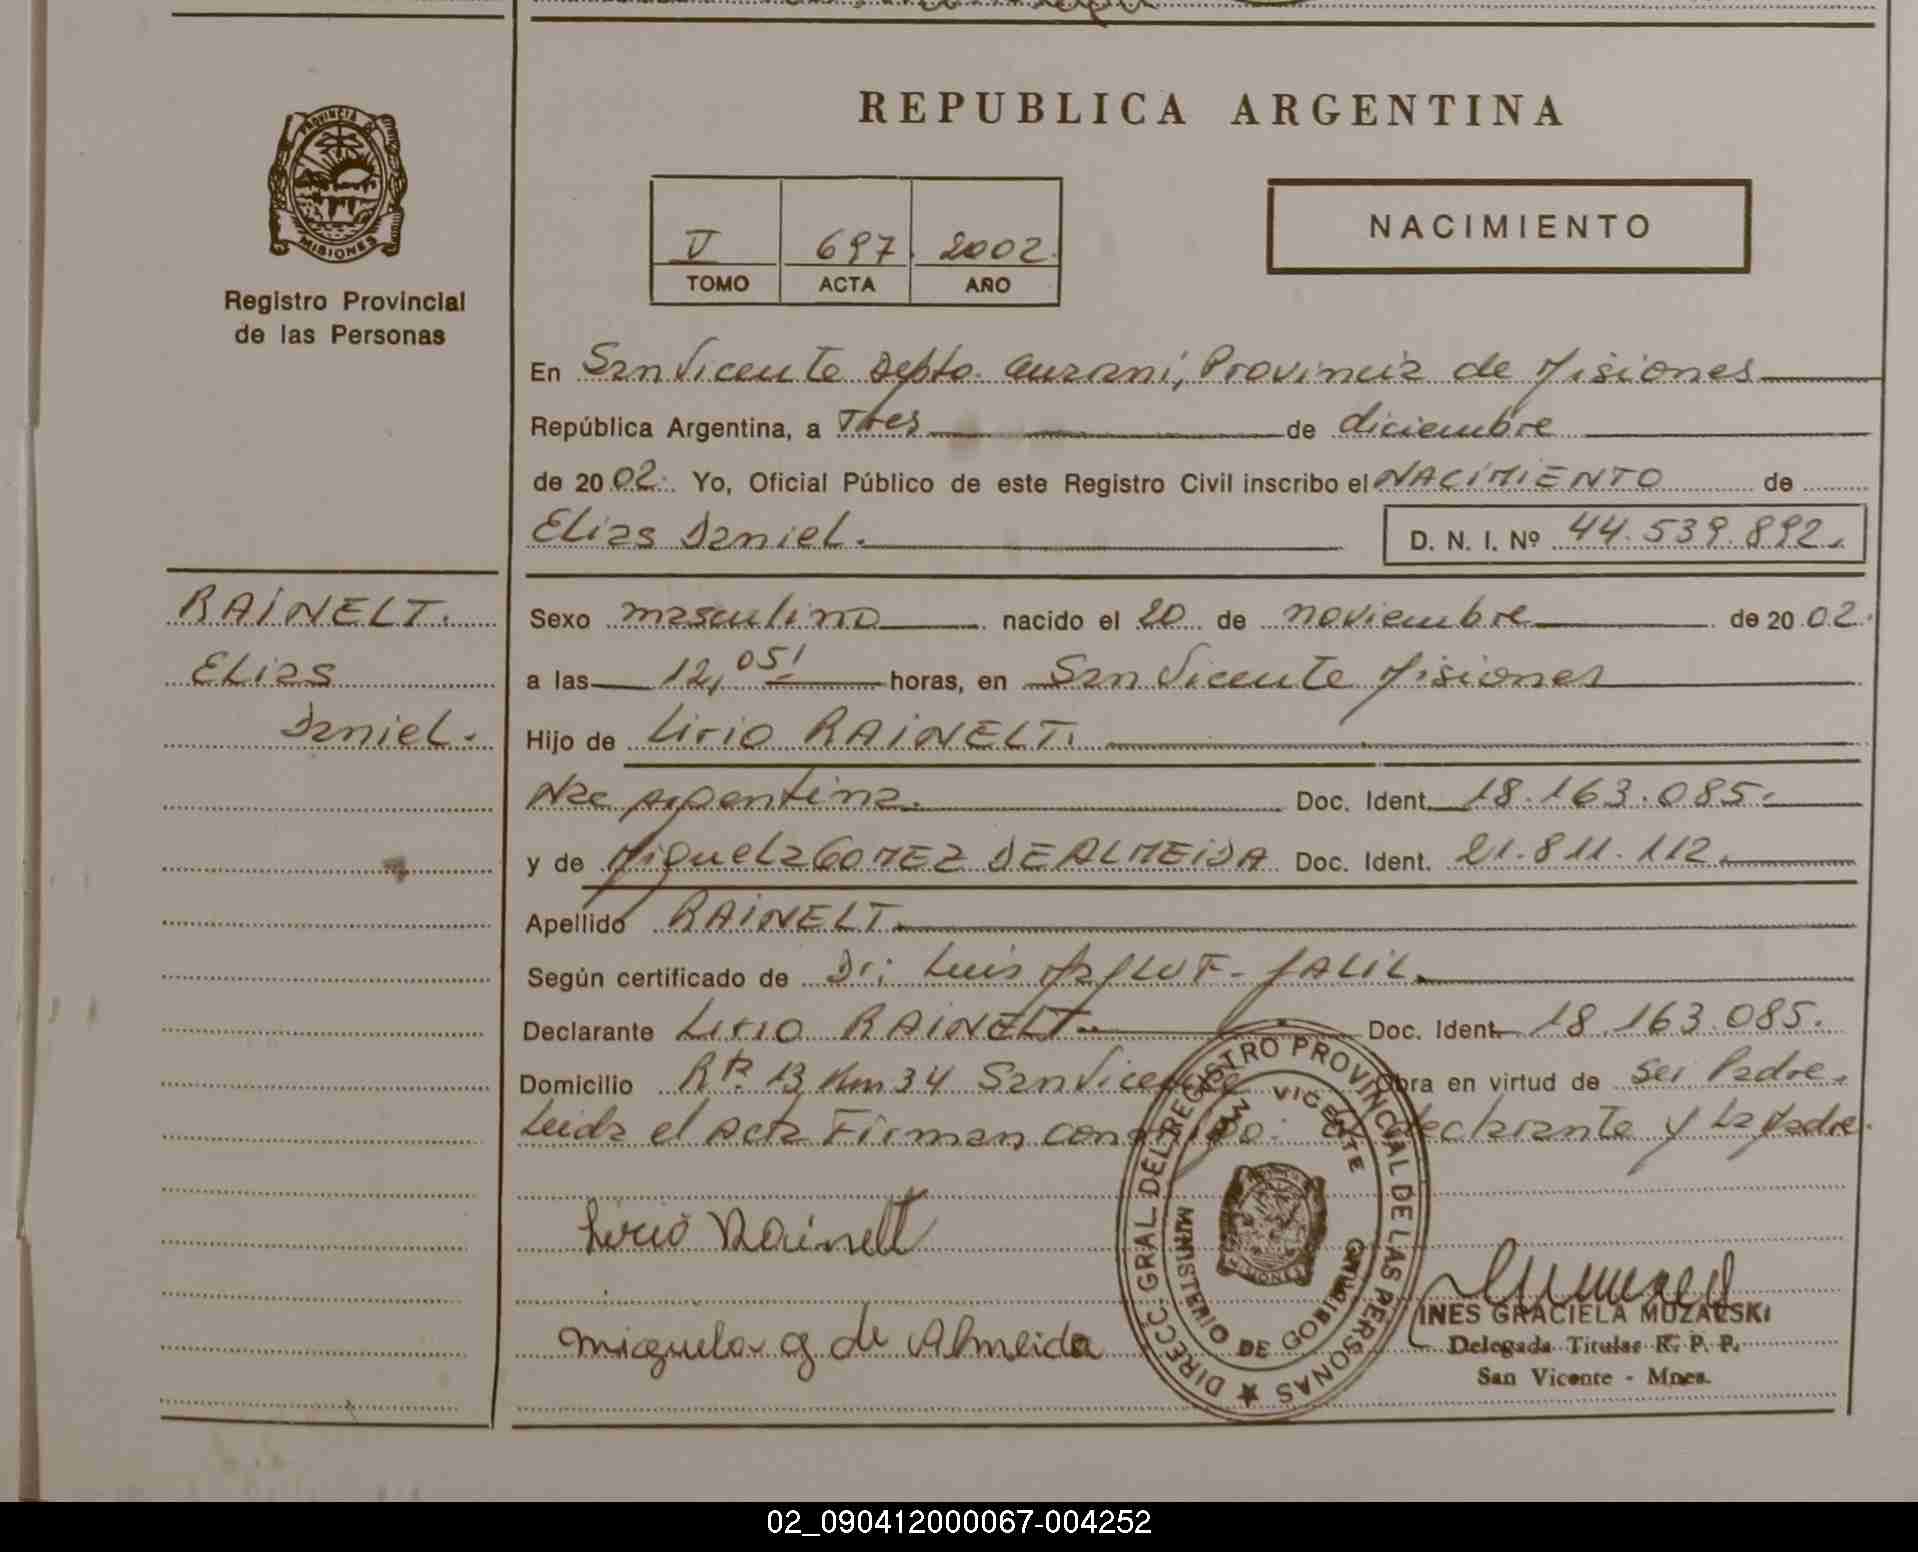 REPUBLICA ARGENTINA
PROVINCIA DE
MISIONES
Registro Provincial
de las Personas
V 697 2002.
TOMO ACTA AÑO
NACIMIENTO
En San Vicente Depto. Guarani, Provincia de Misiones
República Argentina, a Tres de diciembre
de 2002. Yo, Oficial Público de este Registro Civil inscribo el NACIMIENTO de
Elias Daniel. D. N. I. Nº 44.539.892.
RAINELT.
Elias
Daniel.
Sexo masculino nacido el 20 de noviembre de 2002.
a las 12,05' horas, en San Vicente Misiones
Hijo de Lirio RAINELT.
Nac Argentina. Doc. Ident. 18.163.085.
y de Miguela GOMEZ DE ALMEIDA Doc. Ident. 21.811.112.
Apellido RAINELT
Según certificado de Dr: Luis JALIL.
Declarante Lirio RAINELT. Doc. Ident. 18.163.085.
Domicilio Rta. 13 Km 34 San Vicente Obra en virtud de ser Padre.
Leida el Acta Firman conmigo: el declarante y La Madre.
Lirio Rainelt
Miguela g de Almeida
DIRECC. GRAL. DEL REGISTRO PROVINCIAL DE LAS PERSONAS
VICENTE
MINISTERIO DE GOBIERNO
MISIONES
INES GRACIELA MUZALSKI
Delegada Titular R. P. P.
San Vicente - Mnes.
02_090412000067-004252